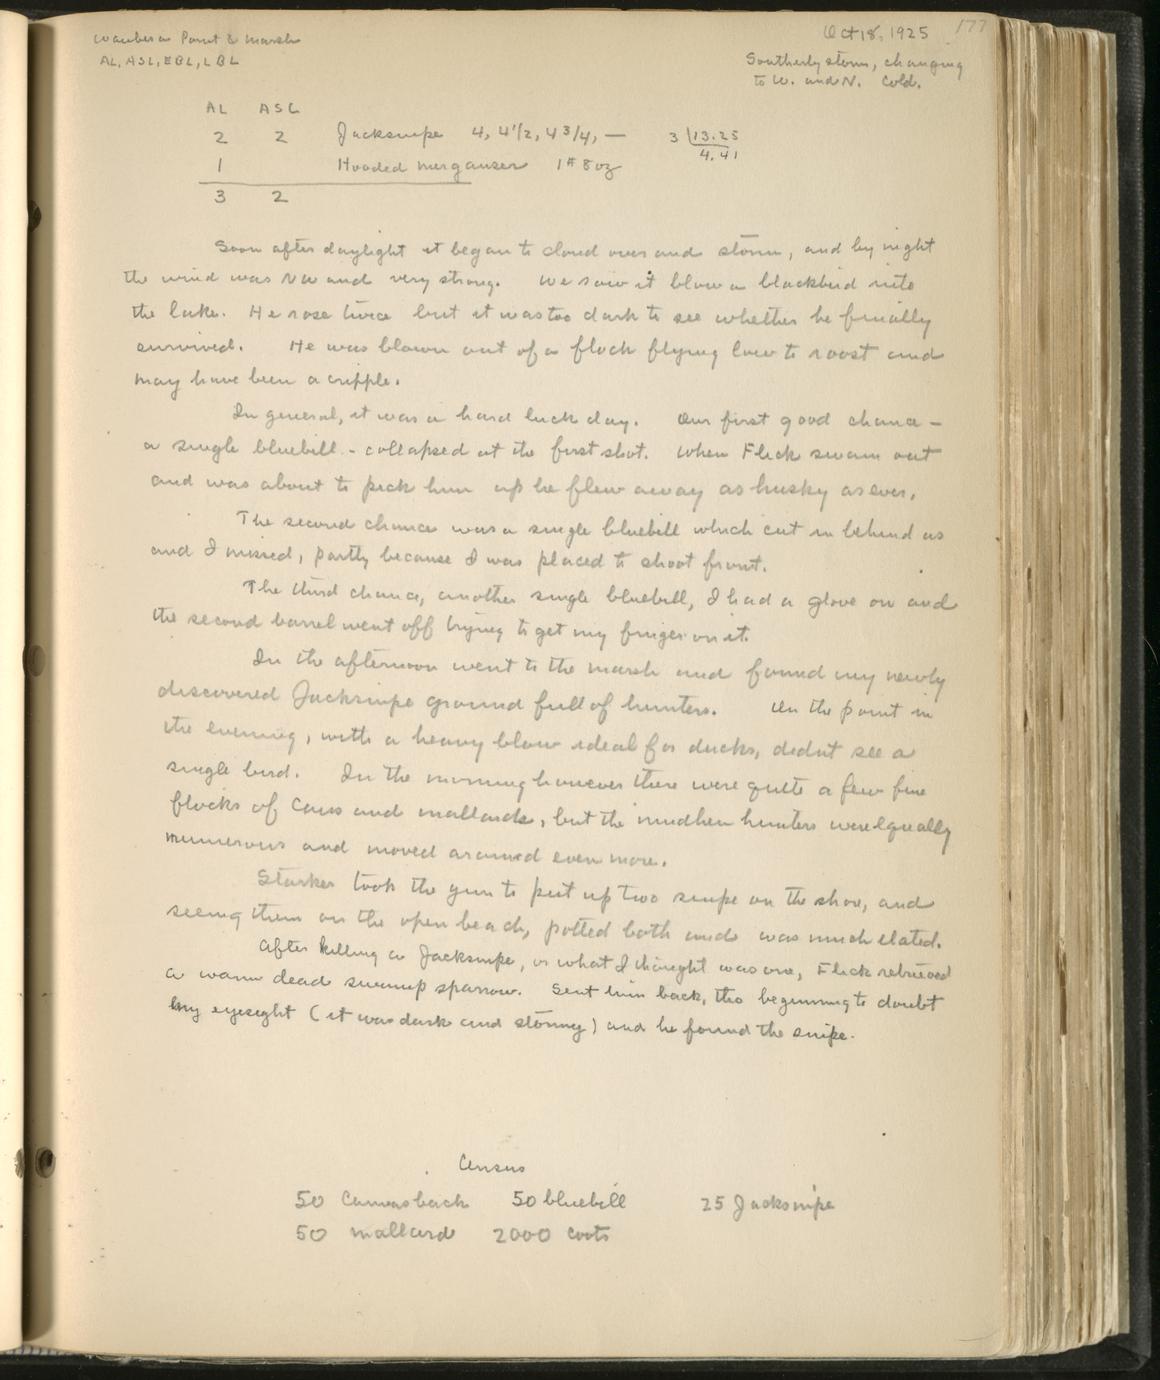 Waubesa Point & Marsh
AL, ASL, EBL, LBL
Oct 18, 1925
177
Southerly storm, changing
to W. and N. Cold.
AL ASL
2 2 Jacksnipe 4, 4 1/2, 4 3/4, —
1 Hooded merganser 1# 8 oz
3 2
3 13.25
4.41
Soon after daylight it began to cloud over and storm, and by night
the wind was NW and very strong. We saw it blow a blackbird into
the lake. He rose twice but it was too dark to see whether he finally
survived. He was blown out of a flock flying low to roost and
may have been a cripple.
In general, it was a hard luck day. Our first good chance —
a single bluebill - collapsed at the first shot. When Flick swam out
and was about to pick him up he flew away as husky as ever.
The second chance was a single bluebill which cut in behind us
and I missed, partly because I was placed to shoot front.
The third chance, another single bluebill, I had a glove on and
the second barrel went off trying to get my finger on it.
In the afternoon went to the marsh and found my newly
discovered Jacksnipe ground full of hunters. On the point in
the evening, with a heavy blow ideal for ducks, didnt see a
single bird. In the morning however there were quite a few fine
flocks of Cans and mallards, but the mudhen hunters were equally
numerous and moved around even more.
Starker took the gun to put up two snipe on the shore, and
seeing them on the open beach, potted both and was much elated.
After killing a Jacksnipe, or what I thought was one, Flick retrieved
a warm dead swamp sparrow. Sent him back, tho beginning to doubt
my eyesight (it was dark and stormy) and he found the snipe.
Census
50 Canvasback 50 bluebill 25 Jacksnipe
50 mallard 2000 coots